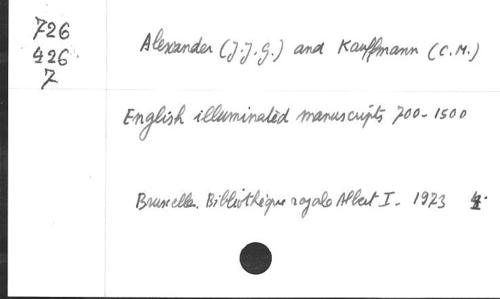 726
426
7
Alexander (J.J.G.) and Kauffmann (C.M.)
English illuminated manuscripts 700-1500
Bruxelles. Bibliothèque royale Albert I. 1973 4.